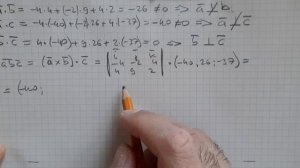 a̅·b̅ = -4·4+(-2)·9+4·2 = -26 ≠ 0 ⇒ a̅ ⊥̸ b̅
a̅·c̅ = -4·(-40)+(-2)·26+4·(-37) = -40 ≠ 0 ⇒ a̅ ⊥̸ c̅
b̅·c̅ = 4·(-40) + 9·26 + 2·(-37) = 0 ⇒ b̅ ⊥ c̅
a̅b̅c̅ = (a̅×b̅)·c̅ = | i̅ j̅ k̅ ; -4 -2 4 ; 4 9 2 | · (-40, 26, -37) =
= (-40;